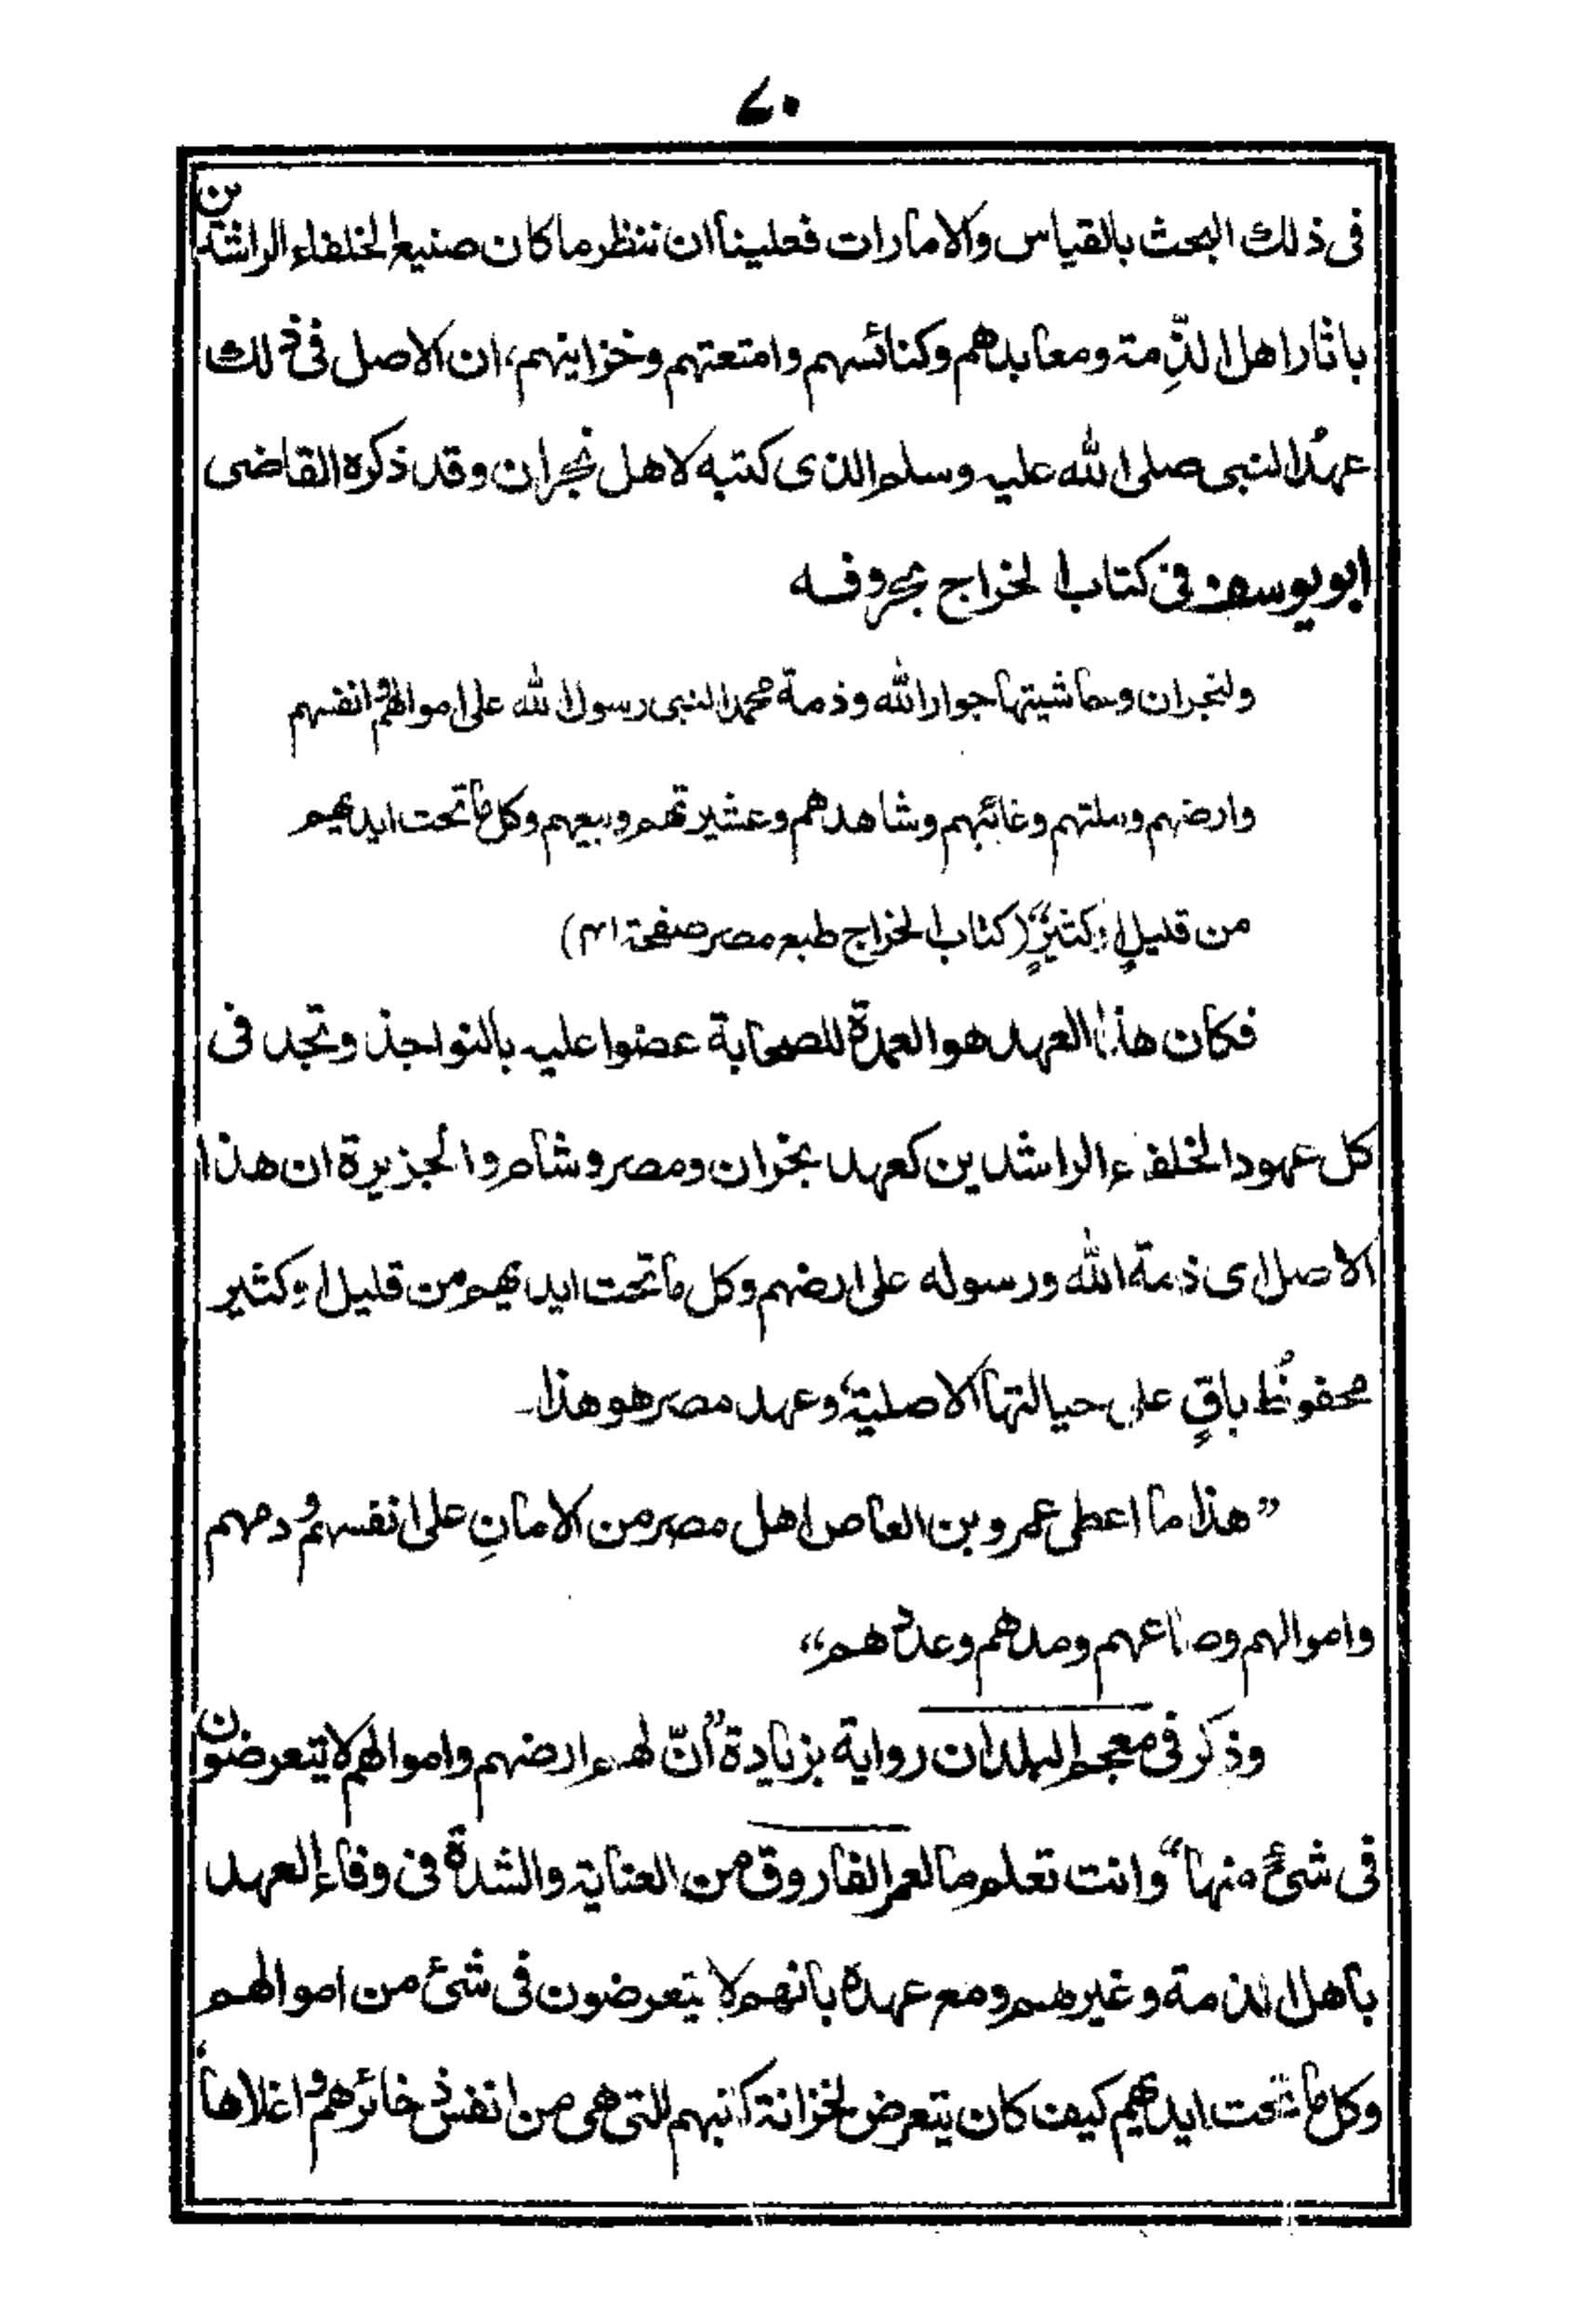 ٤٠
فى ذلك البحث بالقياس والامارات فعلينا ان ننظر ما كان صنيع الخلفاء الراشدين
باثار اهل الذِّمة ومعابدهم وكنائسهم وامتعتهم وخزاينهم، ان الاصل فى ذلك
عهدُ النبى صلى الله عليه وسلم الذى كتبه لاهل نجران وقد ذكره القاضى
ابو يوسف فى كتاب الخراج بحروفه
ولنجران وحاشيتها جوار الله وذمة محمد النبى رسول الله على اموالهم وانفسهم
وارضهم وملتهم وغائبهم وشاهدهم وعشيرتهم وبيعهم وكل ما تحت ايديهم
من قليلٍ او كثيرٍ“ (كتاب الخراج طبع مصر صفحة ٤١)
فكان هذا العهد هو العمدة للصحابة عضوا عليه بالنواجذ وتجد فى
كل عهود الخلفاء الراشدين كعهد نجران ومصر وشام والجزيرة ان هذا
الاصل اى ذمة الله ورسوله على ارضهم وكل ما تحت ايديهم من قليل او كثير
محفوظُ باقٍ على حيالتها الاصلية، وعهد مصر هو هذا۔
”هذا ما اعطى عمرو بن العاص اهل مصر من الامانِ على انفسهم ودمهم
واموالهم وصاعهم ومدهم وعددهم“
وذكر فى معجم البلدان رواية بزيادة ”انّ لهم ارضهم واموالهم لا يتعرضون
فى شئ منها“ وانت تعلم ما لعمر الفاروق من العناية والشدة فى وفاء العهد
باهل الذمة وغيرهم ومع عهدة بانهم لا يتعرضون فى شئ من اموالهم
وكل ما تحت ايديهم كيف كان يتعرض لخزانة كتبهم التى هى من انفس ذخائرهم واغلاها،